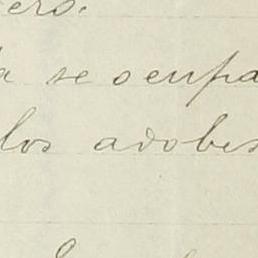 ero.
a se ocupa
los adobes